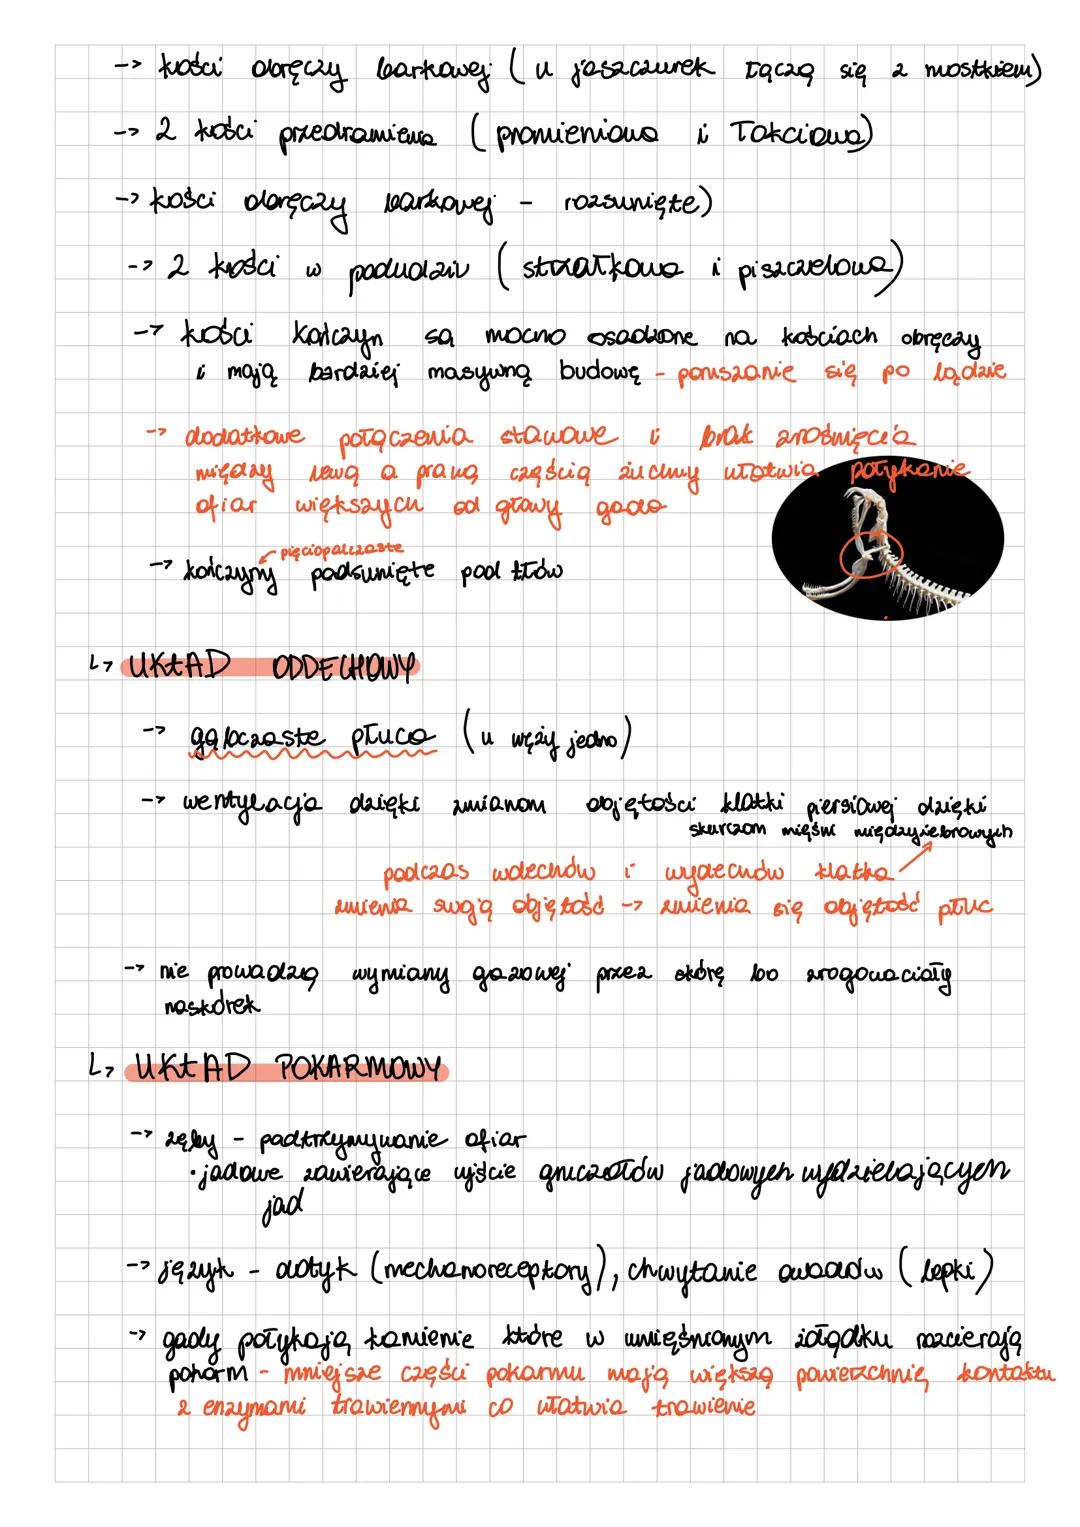 -> kości obręczy barkowej (u jaszczurek łączą się z mostkiem)
-> 2 kości przedramienia (promieniowa i łokciowa)
-> kości obręczy barkowej - rozsunięte)
-> 2 kości w podudziu (strzałkowa i piszczelowa)
-> kości kończyn są mocno osadzone na kościach obręczy
i mają bardziej masywną budowę - poruszanie się po lądzie
-> dodatkowe połączenia stawowe i brak zrośnięcia
między lewą a prawą częścią żuchwy ułatwia połykanie
ofiar większych od głowy gada
pięciopalczaste
-> kończyny podsunięte pod tłów
↳ UKŁAD ODDECHOWY
-> gąbczaste płuca (u węży jedno)
-> wentylacja dzięki zmianom objętości klatki piersiowej dzięki
skurczom mięśni międzyżebrowych
podczas wdechów i wydechów klatka
zmienia swoją objętość -> zmienia się objętość płuc
-> nie prowadzą wymiany gazowej przez skórę bo zrogowaciały
naskórek
↳ UKŁAD POKARMOWY
-> zęby - podtrzymywanie ofiar
• jadowe zawierające ujście gruczołów jadowych wydzielających
jad
-> język - dotyk (mechanoreceptory), chwytanie owadów (lepki)
-> gady połykają kamienie które w umięśnionym żołądku rozcierają
pokarm - mniejsze części pokarmu mają większą powierzchnię kontaktu
z enzymami trawiennymi co ułatwia trawienie